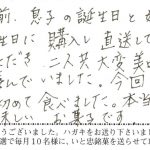 前、息子の誕生日と
生日に購入し直送して
だき、二人共大変美
んでいました。今回
初めて食べました。本当
味しいお菓子です。
うございました。ハガキをお送り下さいま
選で毎月10名様に、いと忠銘菓を送らせて